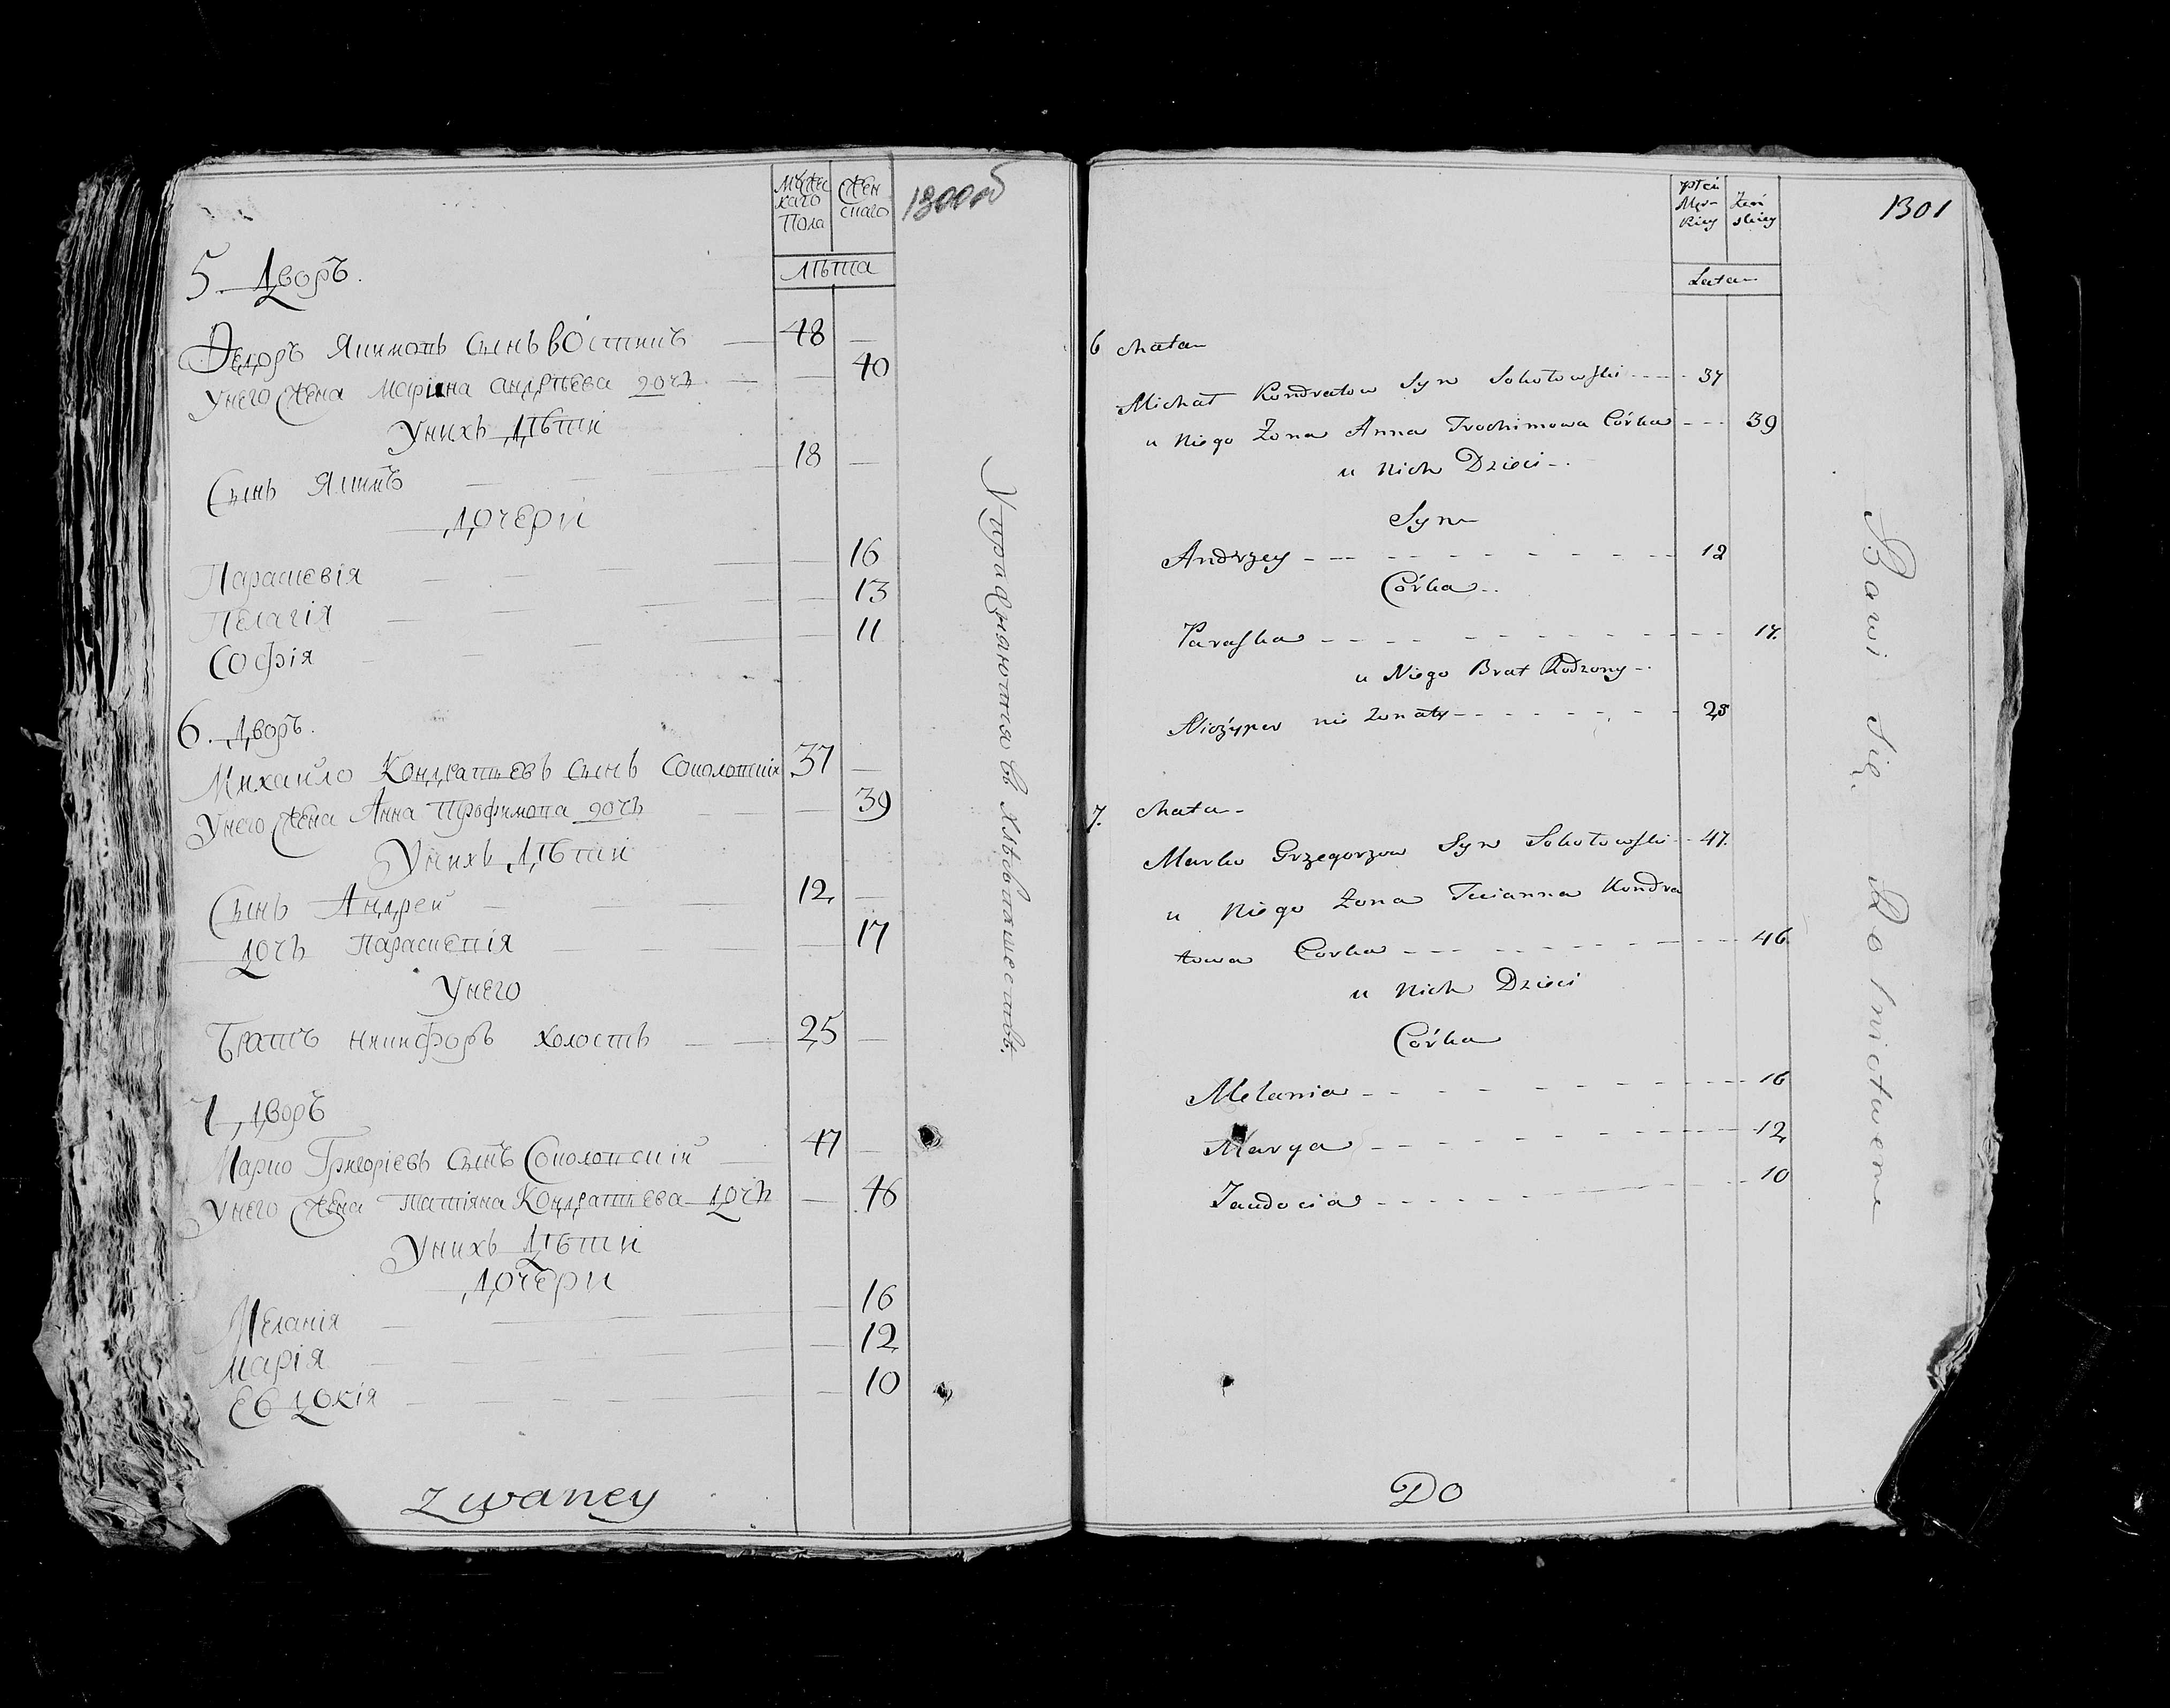 Мужскаго Пола
Женскаго
1300 об
Лѣта
5. Дворъ.
Ѳедоръ Якимовъ сынъ 48 —
У него жена Маріяна Андрѣева дочь — — 40
У нихъ дѣти
Сынъ Якимъ — — 18 —
дочери
Параскевія — — 16
Пелагія — — 13
Софія — — 11
6. Дворъ.
Михайло Кондратьевъ сынъ Соколовскій 37 —
У него жена Анна Трофимова дочь — 39
У нихъ дѣти
Сынъ Андрей — — 12 —
дочь Параскевія — — 17
У него
Братъ Никифоръ холостъ — — 25 —
7 дворъ
Марко Григорієвъ сынъ Соколовскій — 47 —
У него жена Татіяна Кондратьева дочь — 46
У нихъ дѣти
дочери
Меланія — — 16
Марія — — 12
Евдокія — — 10
Упражняются въ хлѣбопашествѣ.
zwaney
płci Męskiey
Żeńskiey
1301
Lata
6 Chata
Michał Kondratow Syn Sokołowski - - - - 37
u Niego Żona Anna Trochimowa Córka - - - 39
u Nich Dzieci -.
Syn
Andrzey - - - - - - - - - - 12
Córka -.
Paraska - - - - - - - - - - 17.
u Niego Brat Rodzony -.
nie żonaty - - - - - - - 25
7. Chata -
Marko Grzegorzow Syn Sokołowski - 47.
u Niego Żona Kondra
towa Corka - - - - - - - - - 46.
u Nich Dzieci
Córka
Melania - - - - - - - - - 16
Marya - - - - - - - - - 12
Jaudocia - - - - - - - - - 10
Bawi się Rolnictwem
Do